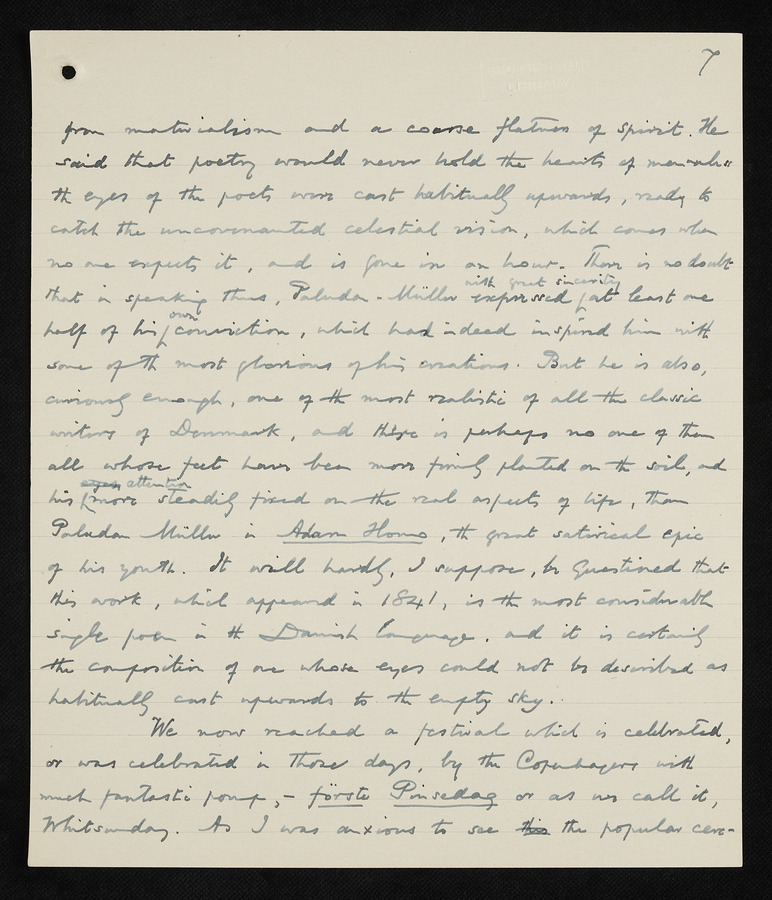 7
from materialism and a coarse flatness of spirit. He
said that poetry would never hold the hearts of men unless
the eyes of the poets were cast habitually upwards, ready to
catch the uncovenanted celestial vision, which comes when
no one expects it, and is gone in an hour. There is no doubt
with great sincerity
that in speaking thus, Paludan-Müller expressed at least one
own
half of his conviction, which had indeed inspired him with
some of the most glorious of his creations. But he is also,
curiously enough, one of the most realistic of all the classic
writers of Denmark, and there is perhaps no one of them
all whose feet have been more firmly planted on the soil, and
eyes attention
his more steadily fixed on the real aspects of life, than
Paludan Müller in Adam Homo, the great satirical epic
of his youth. It will hardly, I suppose, be questioned that
this work, which appeared in 1841, is the most considerable
single poem in the Danish language, and it is certainly
the composition of one whose eyes could not be described as
habitually cast upwards to the empty sky.
We now reached a festival which is celebrated,
or was celebrated in those days, by the Copenhageners with
much fantastic pomp, - förste Pinsedag or as we call it,
Whitsunday. As I was anxious to see this the popular cere-